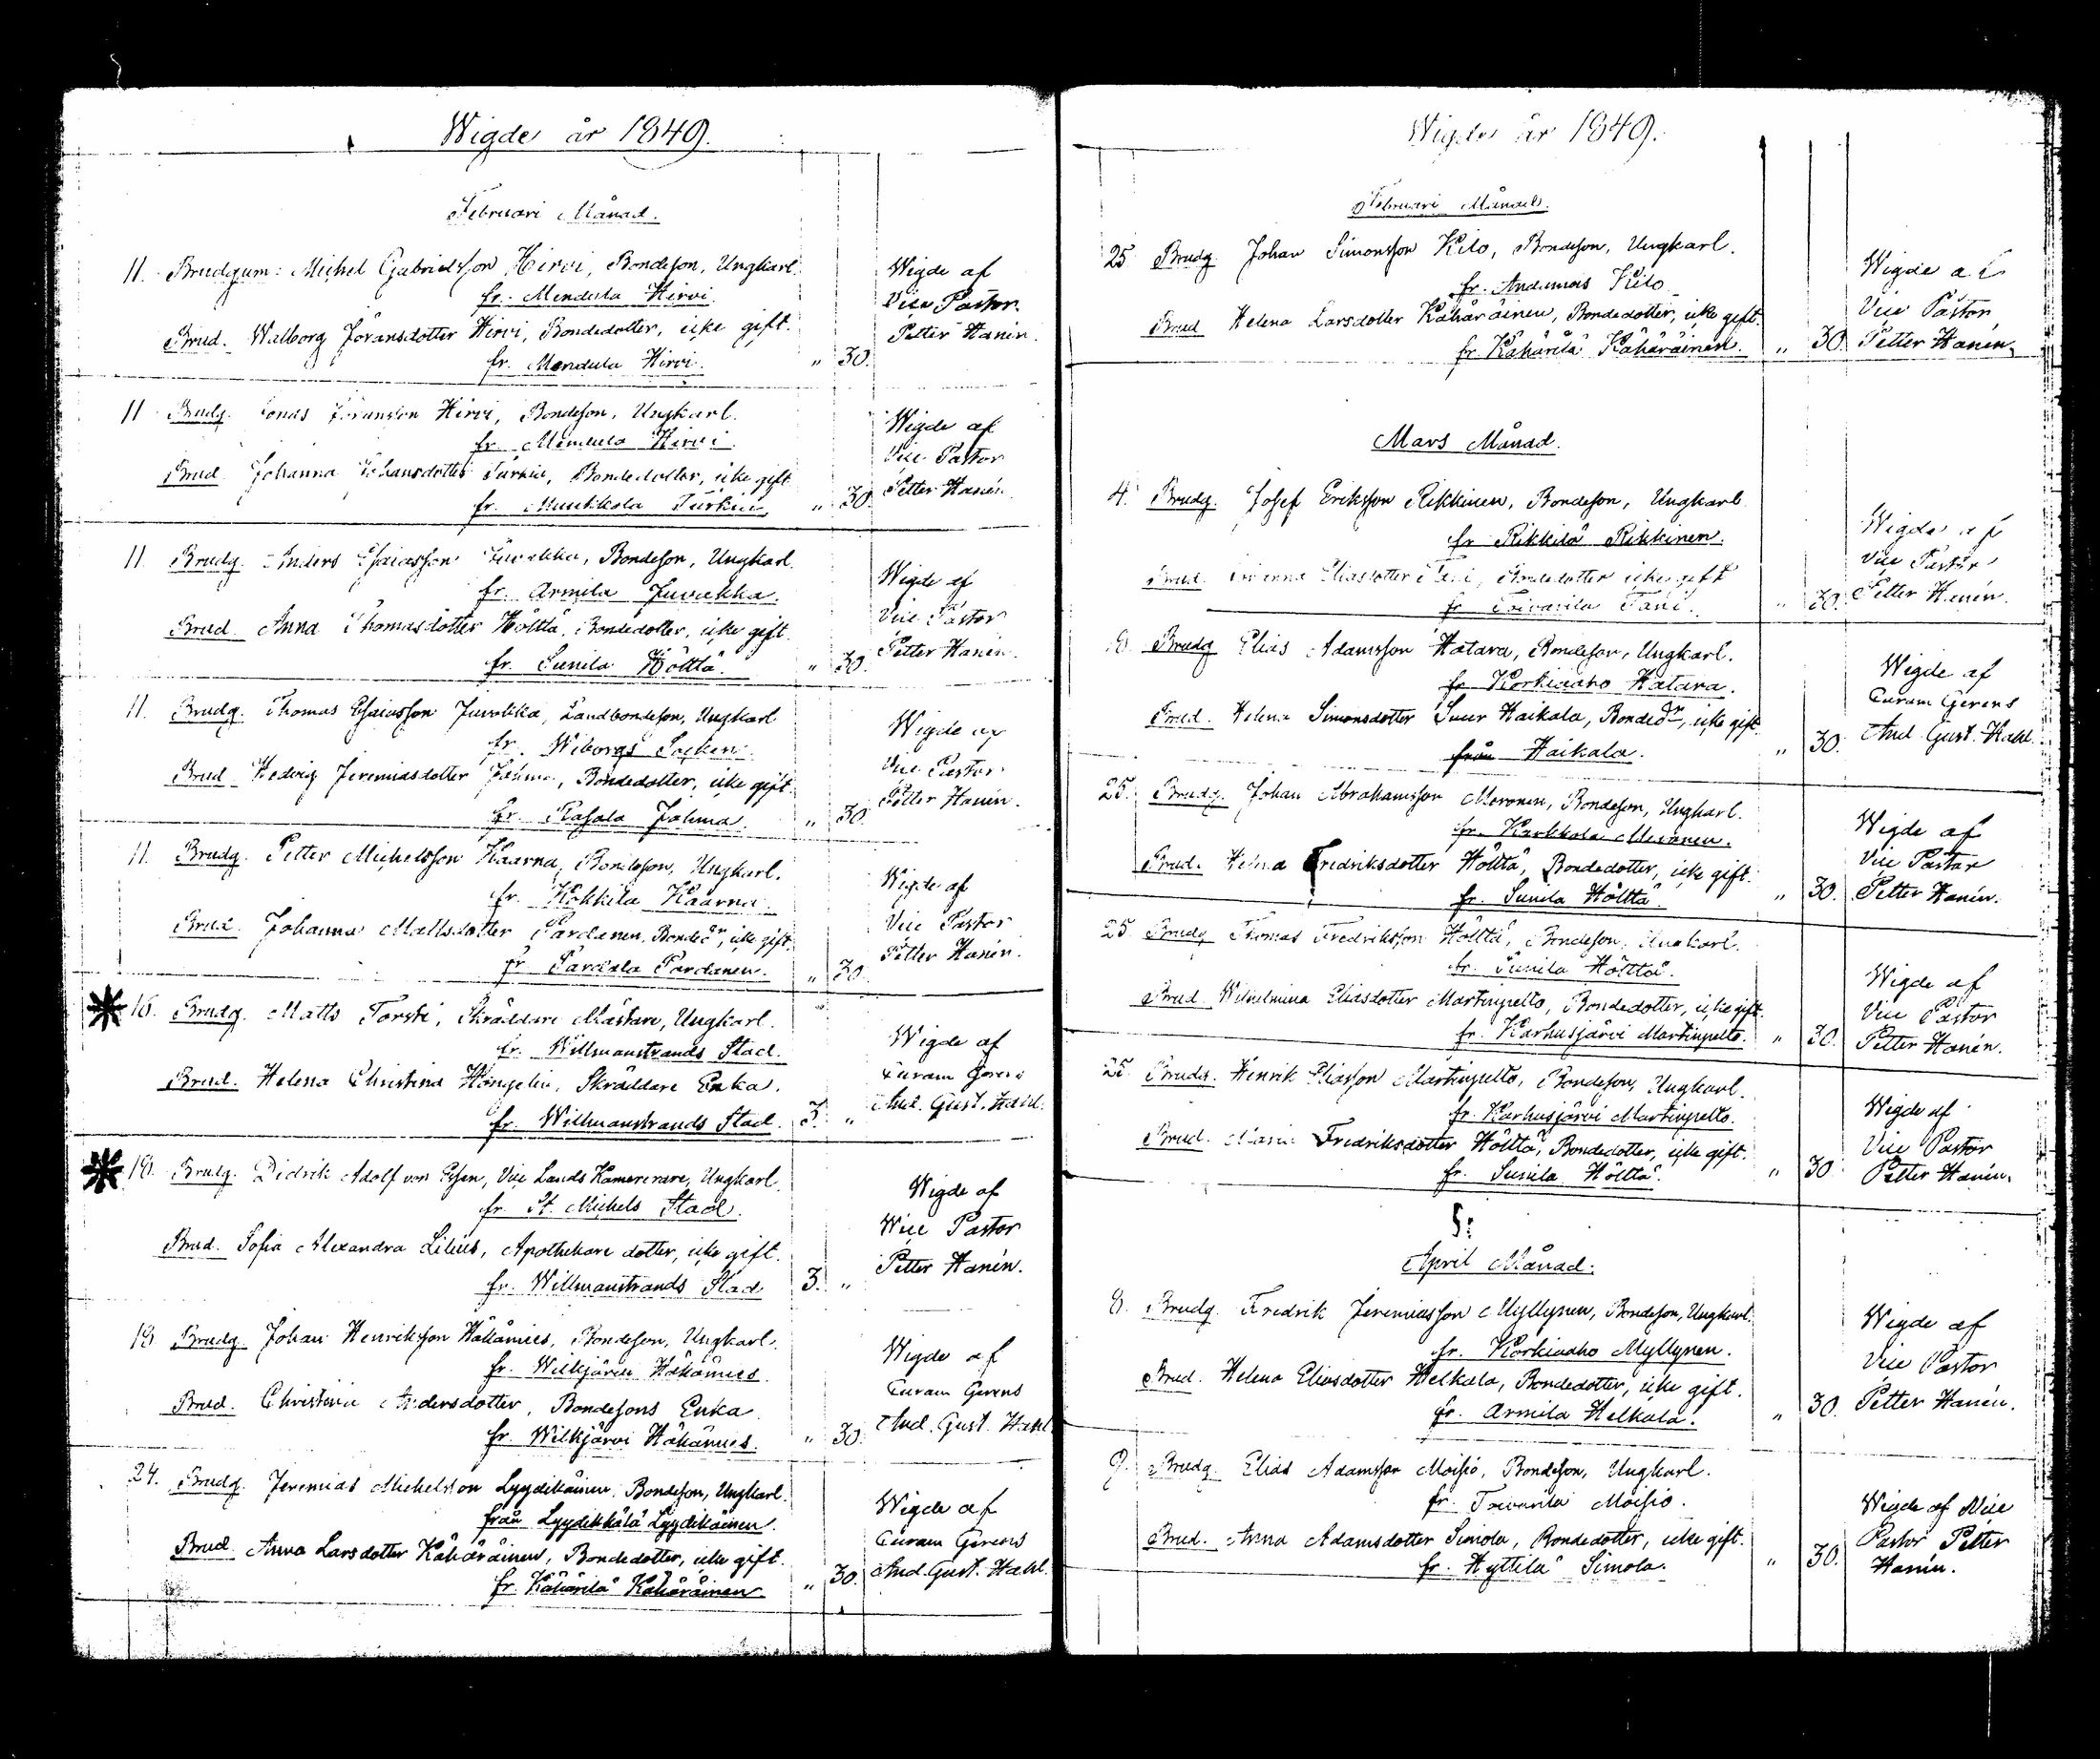 Wigde år 1849.
Februari Månad.
11. Brudgum: Michel Gabrielsson Hirvi, Bondeson, Ungkarl.
fr. Mendula Hirvi.
Brud. Walborg Joransdotter Hirvi, Bondedotter, icke gift.
fr. Mendula Hirvi. " 30.
Wigde af
Vice Pastor
Petter Hanén.
11 Brudg. Jonas Joransson Hirvi, Bondeson, Ungkarl.
fr. Mendula Hirvi.
Brud Johanna Johansdotter Turkia, Bondedotter, icke gift
fr. Muukkola Turkia " 30.
Wigde af
Vice Pastor
Petter Hanén.
11. Brudg. Anders Esaiasson Juvakka, Bondeson, Ungkarl.
fr. Armila Juvakka.
Brud. Anna Thomasdotter Hölttä, Bondedotter, icke gift.
fr. Sunila Hölttä. " 30.
Wigde af
Vice Pastor
Petter Hanén.
11. Brudg. Thomas Esaiasson Juvakka, Landbondeson, Ungkarl
fr. Wiborgs Socken.
Brud Hedvig Jeremiasdotter Johma, Bondedotter, icke gift.
fr. Rasala Johma. " 30.
Wigde af
Vice Pastor
Petter Hanén.
11. Brudg. Petter Michelsson Kaarna, Bondeson, Ungkarl.
fr. Hökkilä Kaarna.
Brud. Johanna Mattsdotter Pardanen, Bondedr, icke gift.
fr. Pardala Pardanen. " 30.
Wigde af
Vice Pastor
Petter Hanén.
16. Brudg. Matts Torsti, Skräddare Mästare, Ungkarl.
fr. Willmanstrands Stad.
Brud. Helena Christina Höngelin, Skräddare Enka.
fr. Willmanstrands Stad. 3. "
Wigde af
Curam Gerens
And. Gust. Hahl.
18. Brudg. Didrik Adolf von Essen, Vice Lands Kamererare, Ungkarl.
fr. St. Michels Stad.
Brud. Sofia Alexandra Lilius, Apothekare dotter, icke gift.
fr. Willmanstrands Stad 3. "
Wigde af
Vice Pastor
Petter Hanén.
18 Brudg. Johan Henriksson Häkämies, Bondeson, Ungkarl.
fr. Wilkjärvi Häkämies.
Brud. Christina Andersdotter, Bondesons Enka
fr. Wilkjärvi Häkämies. " 30.
Wigde af
Curam Gerens
And. Gust. Hahl
24. Brudg. Jeremias Michelsson Lyydikäinen, Bondeson, Ungkarl.
från Lyydikkälä Lyydikäinen.
Brud. Anna Larsdotter Kähäräinen, Bondedotter, icke gift.
fr. Kähärilä Kähäräinen " 30.
Wigde af
Curam Gerens
And. Gust. Hahl.
Wigde år 1849.
Februari Månad.
25 Brudg. Johan Simonsson Kilo, Bondeson, Ungkarl.
fr. Kilo
Brud Helena Larsdotter Kähäräinen, Bondedotter, icke gift.
fr. Kähärilä Kähäräinen. " 30.
Wigde af
Vice Pastor
Petter Hanén.
Mars Månad.
4. Brudg. Josef Eriksson Rikkinen, Bondeson, Ungkarl
fr Rikkilä Rikkinen.
Brud. Eliasdotter Tani, Bondedotter icke gift
fr Toivarila Tani. " 30.
Wigde af
Vice Pastor
Petter Hanén.
8. Brudg Elias Adamsson Hatara, Bondeson, Ungkarl.
fr Korkiaaho Hatara.
Brud. Helena Simonsdotter Suur Haikala, Bondedr, icke gift
från Haikala. " 30.
Wigde af
Curam Gerens
And. Gust. Hahl.
25. Brudg. Johan Abrahamsson Moronen, Bondeson, Ungkarl.
fr. Karkkola Moronen.
Brud. Helena Fredriksdotter Hölttä, Bondedotter, icke gift.
fr. Sunila Hölttä. " 30.
Wigde af
Vice Pastor
Petter Hanén.
25 Brudg Thomas Fredriksson Hölttä, Bondeson, Ungkarl.
fr. Sunila Hölttä.
Brud Wilhelmina Eliasdotter Martinpelto, Bondedotter, icke gift.
fr. Karhusjärvi Martinpelto. " 30.
Wigde af
Vice Pastor
Petter Hanén.
25 Brudg. Henrik Eliasson Martinpelto, Bondeson, Ungkarl.
fr. Karhusjärvi Martinpelto.
Brud. Maria Fredriksdotter Hölttä, Bondedotter, icke gift.
fr. Sunila Hölttä. " 30
Wigde af
Vice Pastor
Petter Hanén.
April Månad.
8. Brudg. Fredrik Jeremiasson Myllynen, Bondeson, Ungkarl.
fr. Korkiaaho Myllynen.
Brud. Helena Eliasdotter Helkala, Bondedotter, icke gift.
fr. Armila Helkala. " 30.
Wigde af
Vice Pastor
Petter Hanén.
9. Brudg. Elias Adamsson Moisio, Bondeson, Ungkarl.
fr. Toivarila Moisio.
Brud. Anna Adamsdotter Simola, Bondedotter, icke gift.
fr. Hyttilä Simola. " 30.
Wigde af Vice
Pastor Petter
Hanén.